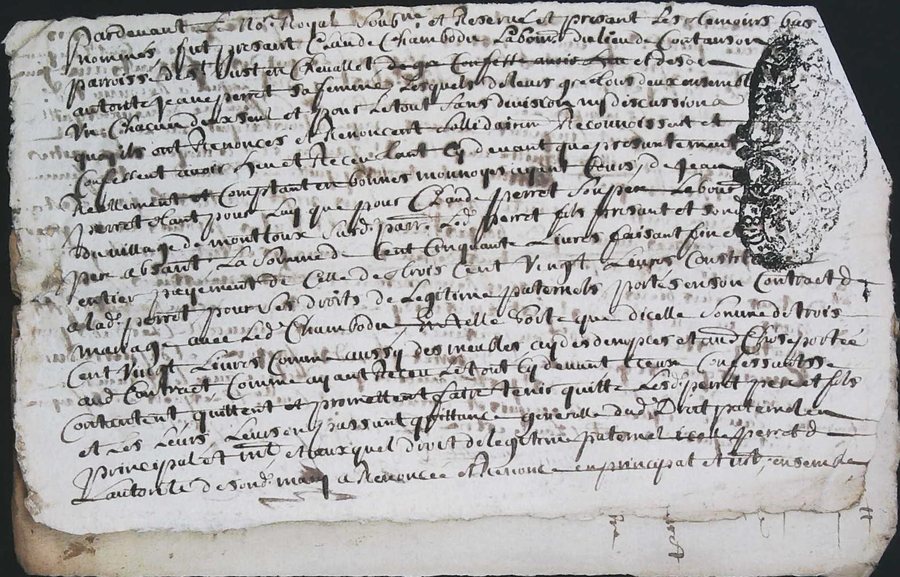 Pardevant le No.re Royal Soubnè et Reservé et presant les temoins bas
nommés fut presant Claude Chambodu Labour. du lieu de Contanson
parroisse de St Just en Chevallet et de
autorite Jeane perret sa femme Lesquels de leurs gre tous deux ensemble
Un Chacun deux seul et pour le tout sans division ny discussion a
quoy ils ont Renonces et Renoncent sollidairem. Reconnoissent et
Confessent avoir heu et Receu Cydevant que presantement
Reellement et Comptant en bonnes monnoyes ayant Cours, de Jean
perret tant pour Luy que pour Claude perret son pere Labour.
du village de montloux Led. perret fils presant et son
pere absant La somme de Cent Cinquante Livres faisant fin et
entier payement de Celle de trois Cent Vingt Livres Constituée
a lad. perret pour ses droits de Legitime paternels portés en son Contract de
mariage avec led. Chambodu En telle sorte que dicelle somme de trois
Cent Vingt Livres Comme aussy des meubles et autre Chose portée
aud Contract Comme ayant Receu Le tout Cy devant Iceux Confessantz se
Contantent quittent et promettent faire tenir quitte Lesd. perret pere et fils
et Les Leurs Leurs en passant quittance generalle dud. Droit paternel en
principal et int. et auxquel droit de legitime paternel icelle perret de
Lautorité de sond. mary a Renoncée et Renonce en principal et int. ensemble